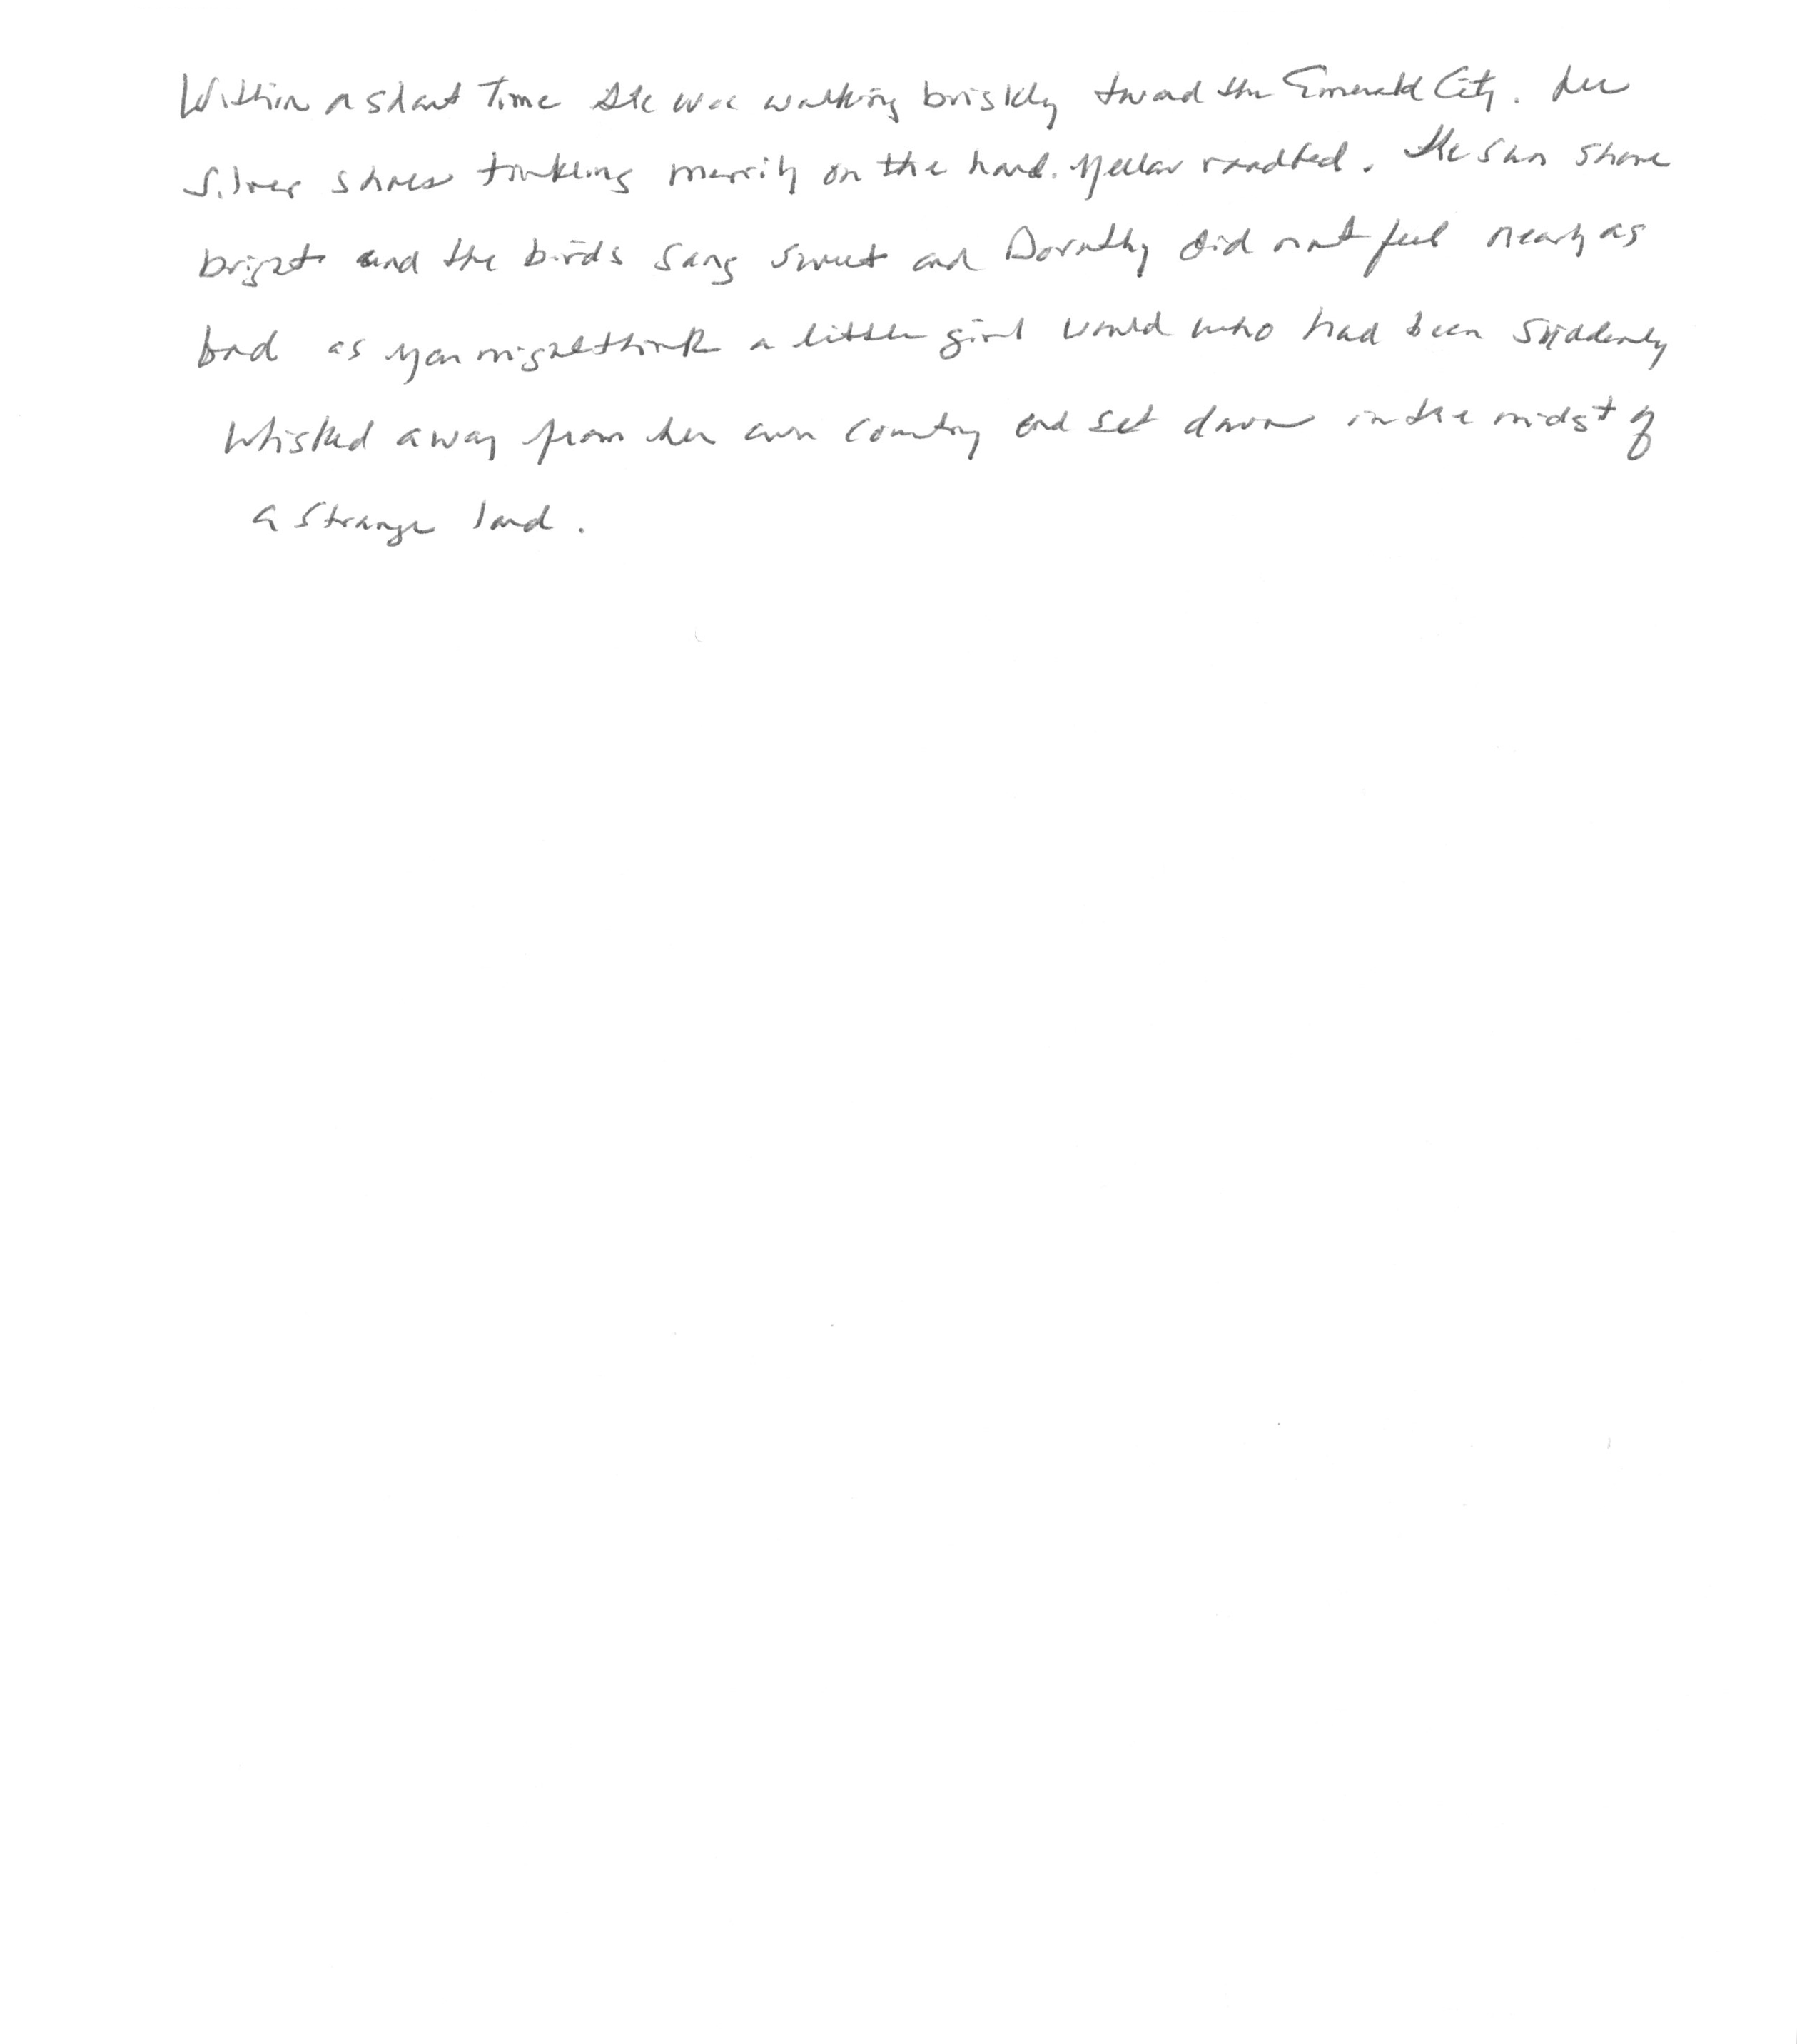 Within a short time she was walking briskly toward the Emerald City. Her
silver shoes tinkling merrily on the hard. yellow roadbed. The sun shone
bright and the birds sang sweet and Dorothy did not feel nearly as
bad as you might think a little girl would who had been suddenly
whisked away from her own country and set down in the midst of
a strange land.